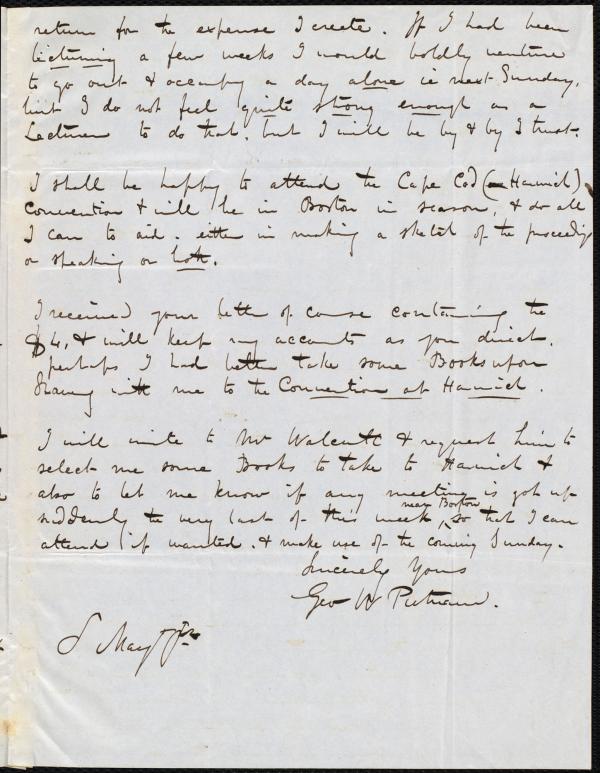 return for the expense I create. If I had been
lecturing a few weeks I would boldly venture
to go out & occupy a day alone ie next Sunday,
but I do not feel quite strong enough as a
Lecturer to do that. but I will be by & by I trust.
I shall be happy to attend the Cape Cod (Harwich)
Convention & will be in Boston in season, & do all
I can to aid. either in making a sketch of the proceedings
or speaking or both.
I received your letter of course containing the
$4, & will keep my accounts as you direct.
perhaps I had better take some Books upon
Slavery with me to the Convention at Harwich.
I will write to Mr Walcutt & request him to
select me some Books to take to Harwich &
also to let me know if any meeting is got up
near Boston
suddenly the very last of this week, so that I can
attend if wanted. & make use of the coming Sunday.
Sincerely Yours
Geo W Putnam.
S May Jr